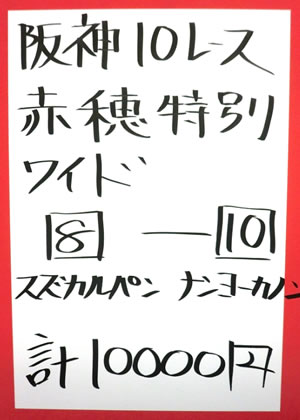 阪神10レース
赤穂特別
ワイド
8 — 10
スズカルパン ナンヨーカノン
計10000円